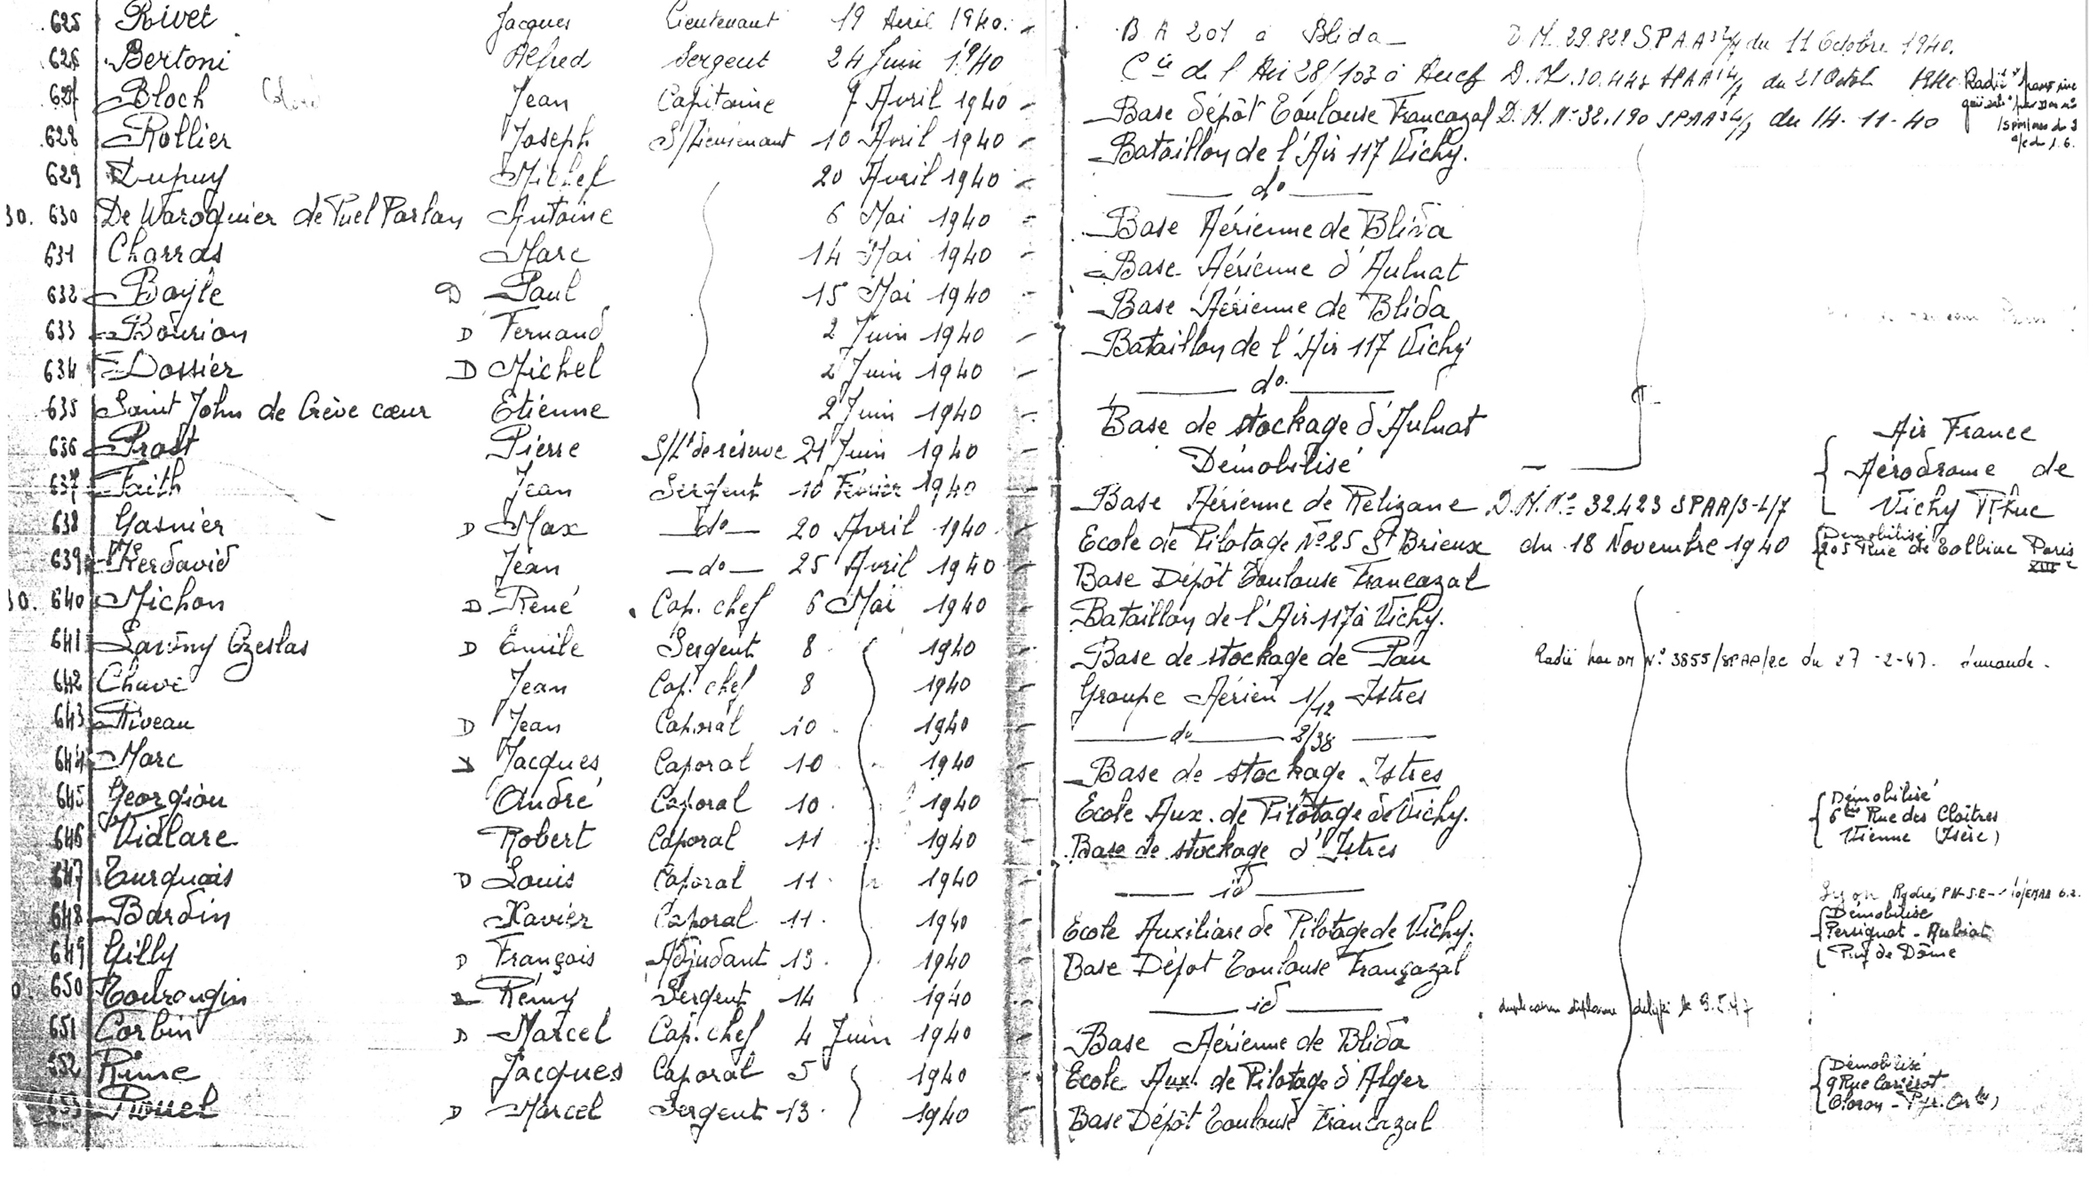 625 Rivet Jacques Lieutenant 19 Avril 1940. B A 201 à Blida D.M. 29.828 S.P.A.A 3 4/7 du 11 Octobre 1940.
626 Bertoni Alfred Sergent 24 Juin 1940 Cie de l'Air 28/103 à D.M. du 21 Octob 1940
627 Bloch Jean Capitaine 7 Avril 1940 Base dépôt Toulouse Francazal D.M. No 32.190 SPAA 3 4/7 du 14-11-40
628 Rollier Joseph S/Lieutenant 10 Avril 1940 Bataillon de l'Air 117 Vichy.
629 Dupuy Michel 20 Avril 1940 do
30. 630 De Waroquier de Puel Parlan Antoine 6 Mai 1940 Base Aérienne de Blida
631 Charras Marc 14 Mai 1940 Base Aérienne d'Aulnat
632 Bayle D Paul 15 Mai 1940 Base Aérienne de Blida
633 Bourion D Fernand 2 Juin 1940 Bataillon de l'Air 117 Vichy
634 Dossier D Michel 2 Juin 1940 do.
635 Saint John de Crève cœur Etienne 2 Juin 1940 Base de stockage d'Aulnat
636 Prost Pierre S/Lt de réserve 21 Juin 1940 Démobilisé Air France Aérodrome de Vichy Rhue
637 Faith Jean Sergent 10 Février 1940 Base Aérienne de Relizane D.M. No = 32.423 SPAA/3-4/7
638 Gasnier D Max do 20 Avril 1940 Ecole de Pilotage No 25 St Brieux du 18 Novembre 1940 Démobilisé 205 Rue de Tolbiac Paris XIII e
639 Kerdavid Jean do 25 Avril 1940 Base Dépôt Toulouse Francazal
30. 640 Michon D René Cap. chef 6 Mai 1940 Bataillon de l'Air 117 à Vichy.
641 Czeslas D Emile Sergent 8 1940 Base de stockage de Pau Radié par DM No 3855/SPAP/2C du 27-2-47. demande.
642 Chave Jean Cap. chef 8 1940 Groupe Aérien 1/12 Istres
643 Niveau D Jean Caporal 10 1940 do 2/38
644 Marc Jacques Caporal 10 1940 Base de stockage Istres
645 Georgiou André Caporal 10 1940 Ecole Aux. de Pilotage de Vichy. Démobilisé 6 Rue des Cloîtres Vienne (Isère)
646 Vidlare Robert Caporal 11 1940 Base de stockage d'Istres
647 Turquais D Louis Caporal 11 1940 id
648 Bardin Xavier Caporal 11 1940 Ecole Auxiliaire de Pilotage de Vichy. Démobilisé Persignat - Aubiat Puy de Dôme
649 Gilly D François Adjudant 13 1940 Base Dépôt Toulouse Francazal
650 Tourangin Rémy Sergent 14 1940 id
651 Corbin D Marcel Cap. chef 4 Juin 1940 Base Aérienne de Blida
652 Rime Jacques Caporal 5 1940 Ecole Aux. de Pilotage d'Alger Démobilisé 9 Rue Oloron
653 D Marcel Sergent 13 1940 Base Dépôt Toulouse Francazal